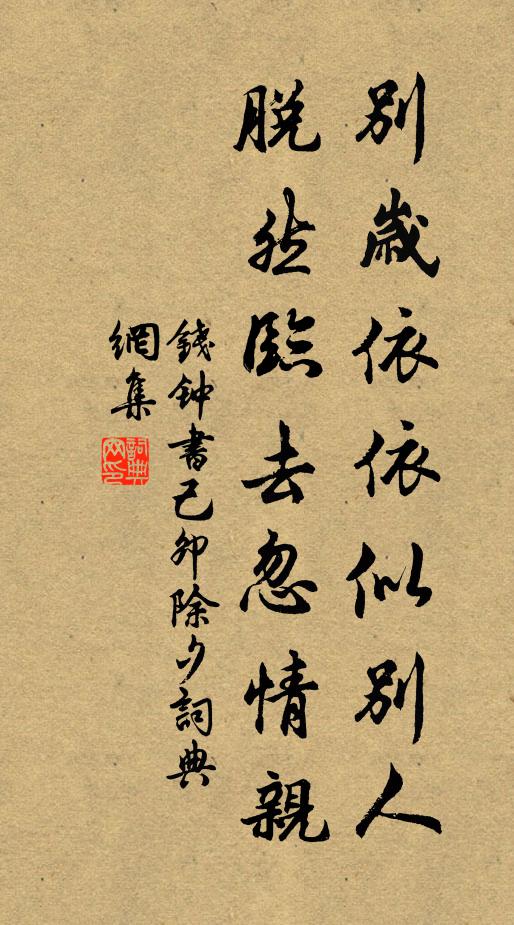 別歲依依似別人
脫然臨去忽情親
錢鈡書己卯除夕詞典
網集
詞典網印